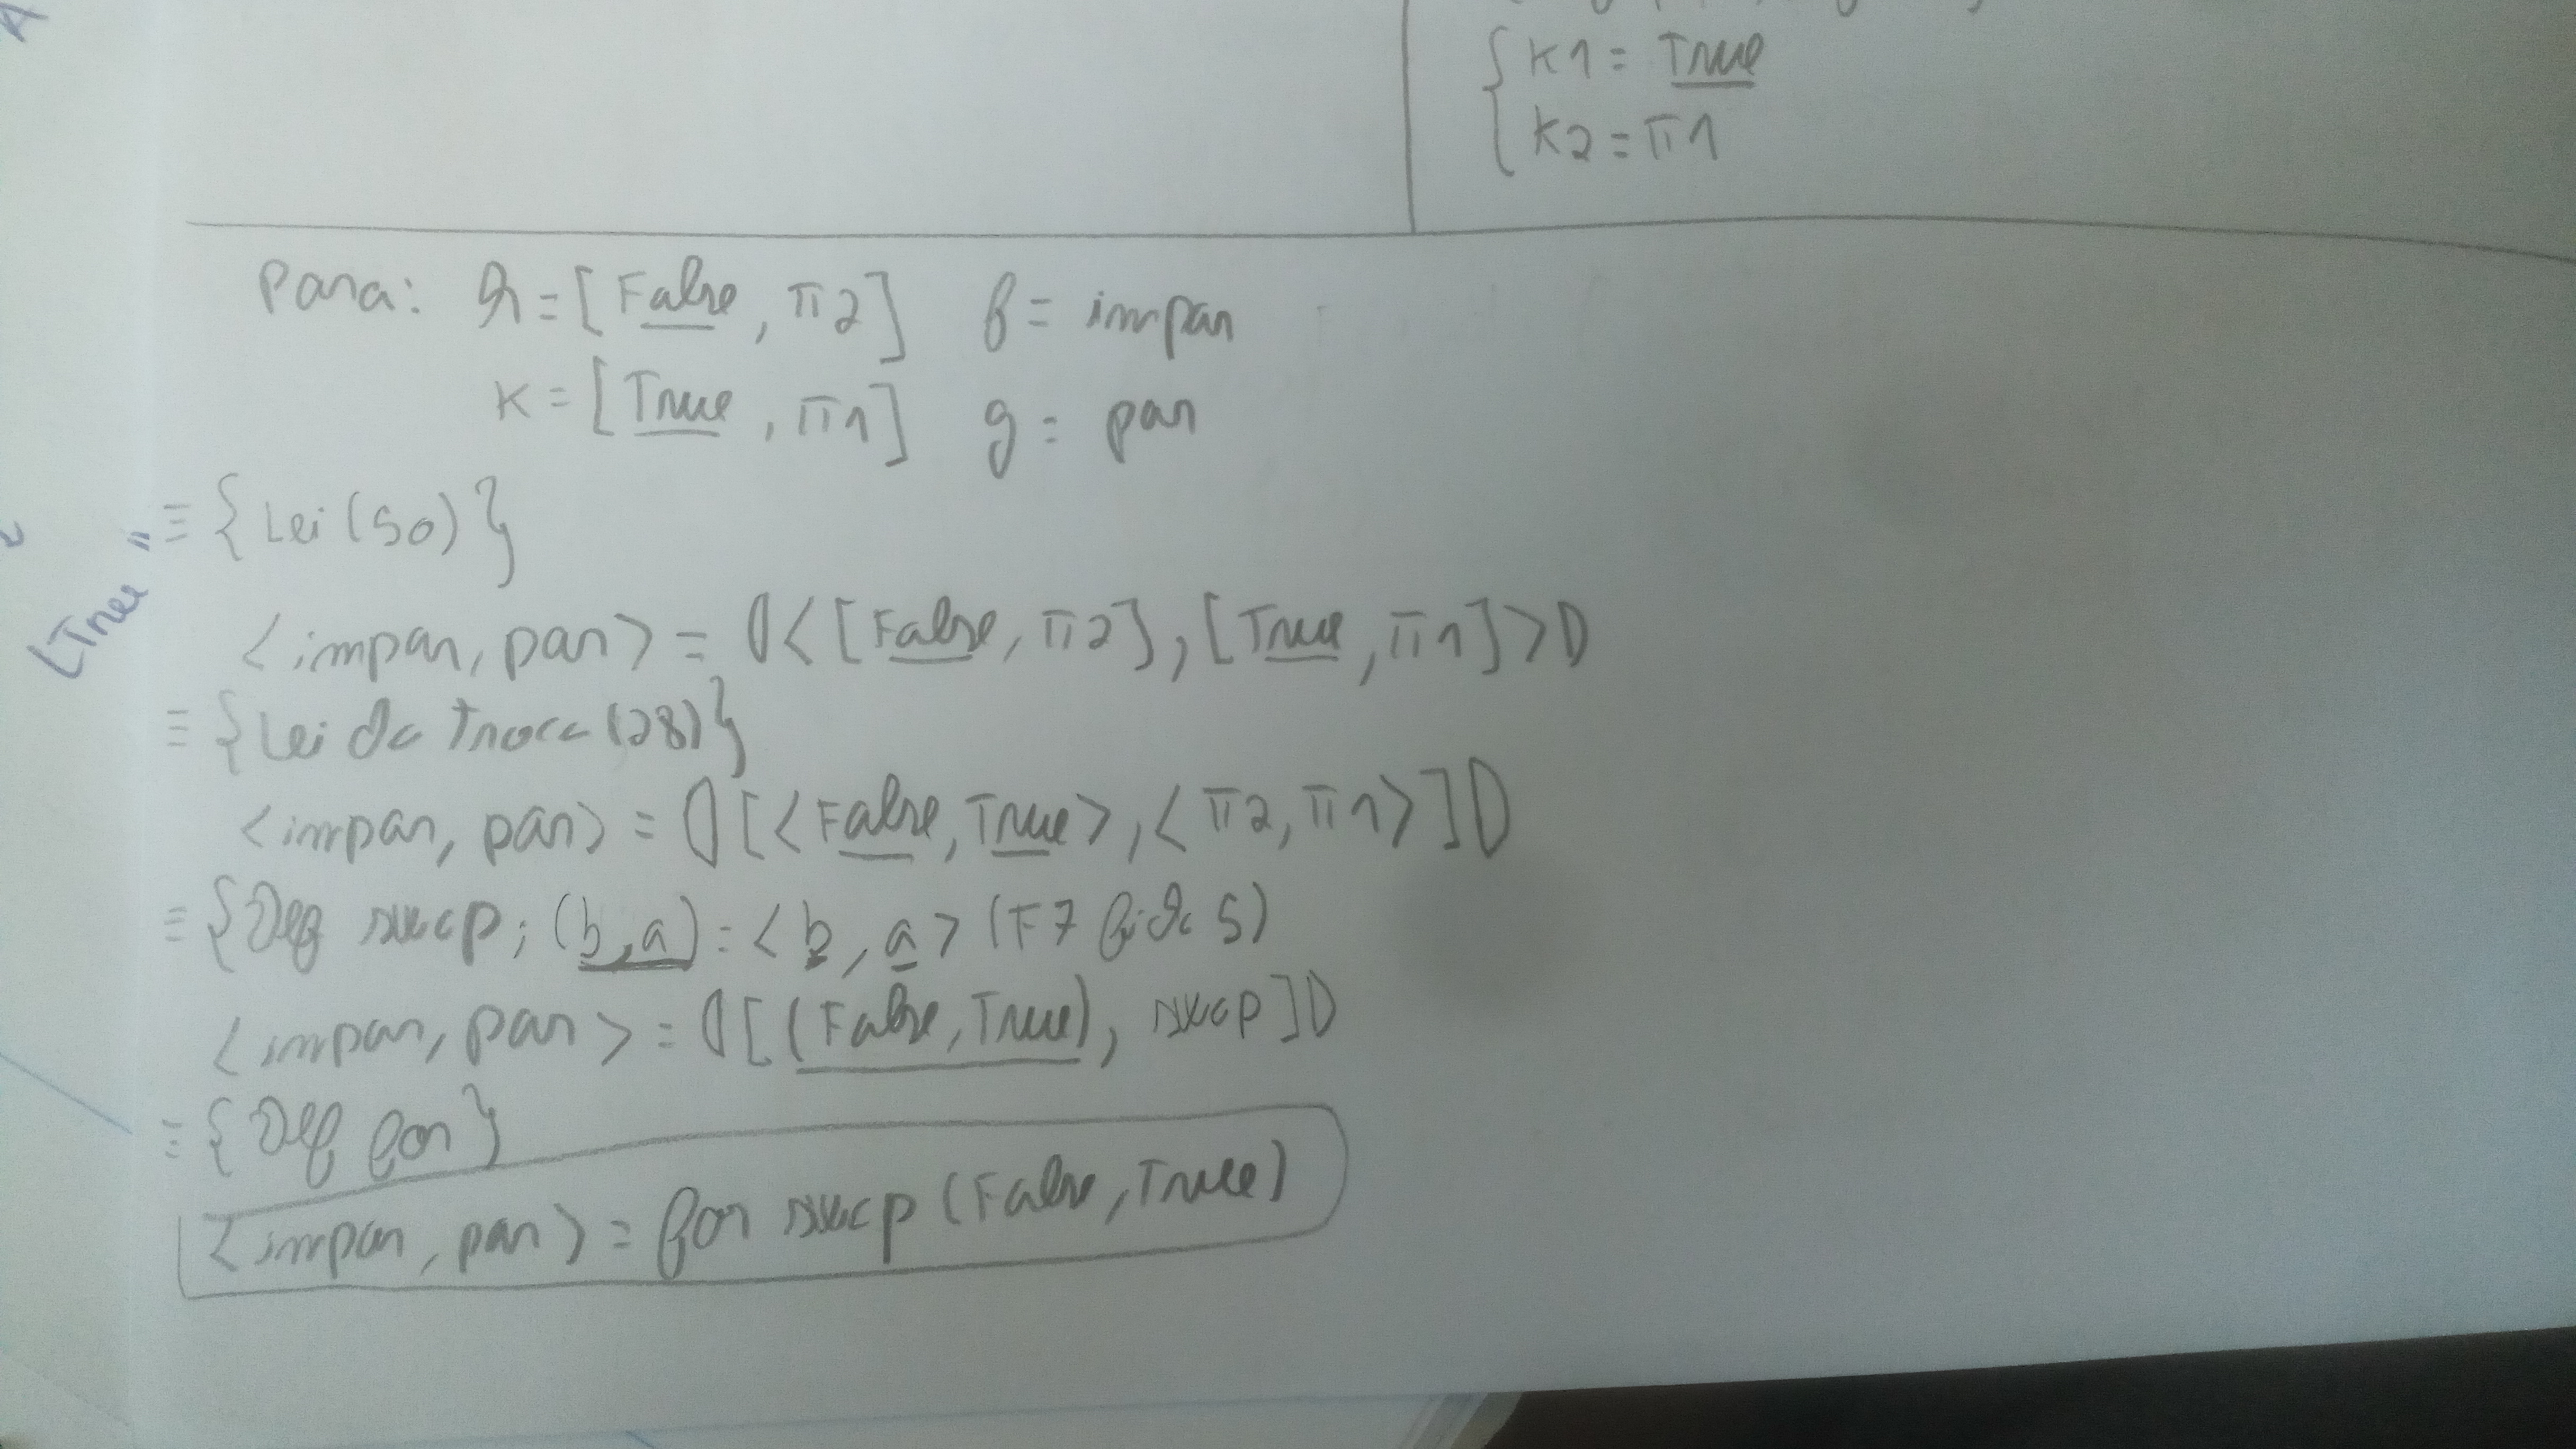 k1 = True
k2 = π1
para: h = [False, π2] f = impar
k = [True, π1] g = par
≡ {Lei (50)}
<impar, par> = ⦇<[False, π2], [True, π1]>⦈
[True
≡ {Lei da troca (28)}
<impar, par> = ⦇[<False, True>, <π2, π1>]⦈
≡ {Def swap; (b,a) = <b, a> (F7 ficha 5)
<impar, par> = ⦇[(False, True), swap]⦈
≡ {Def for}
<impar, par> = for swap (False, True)